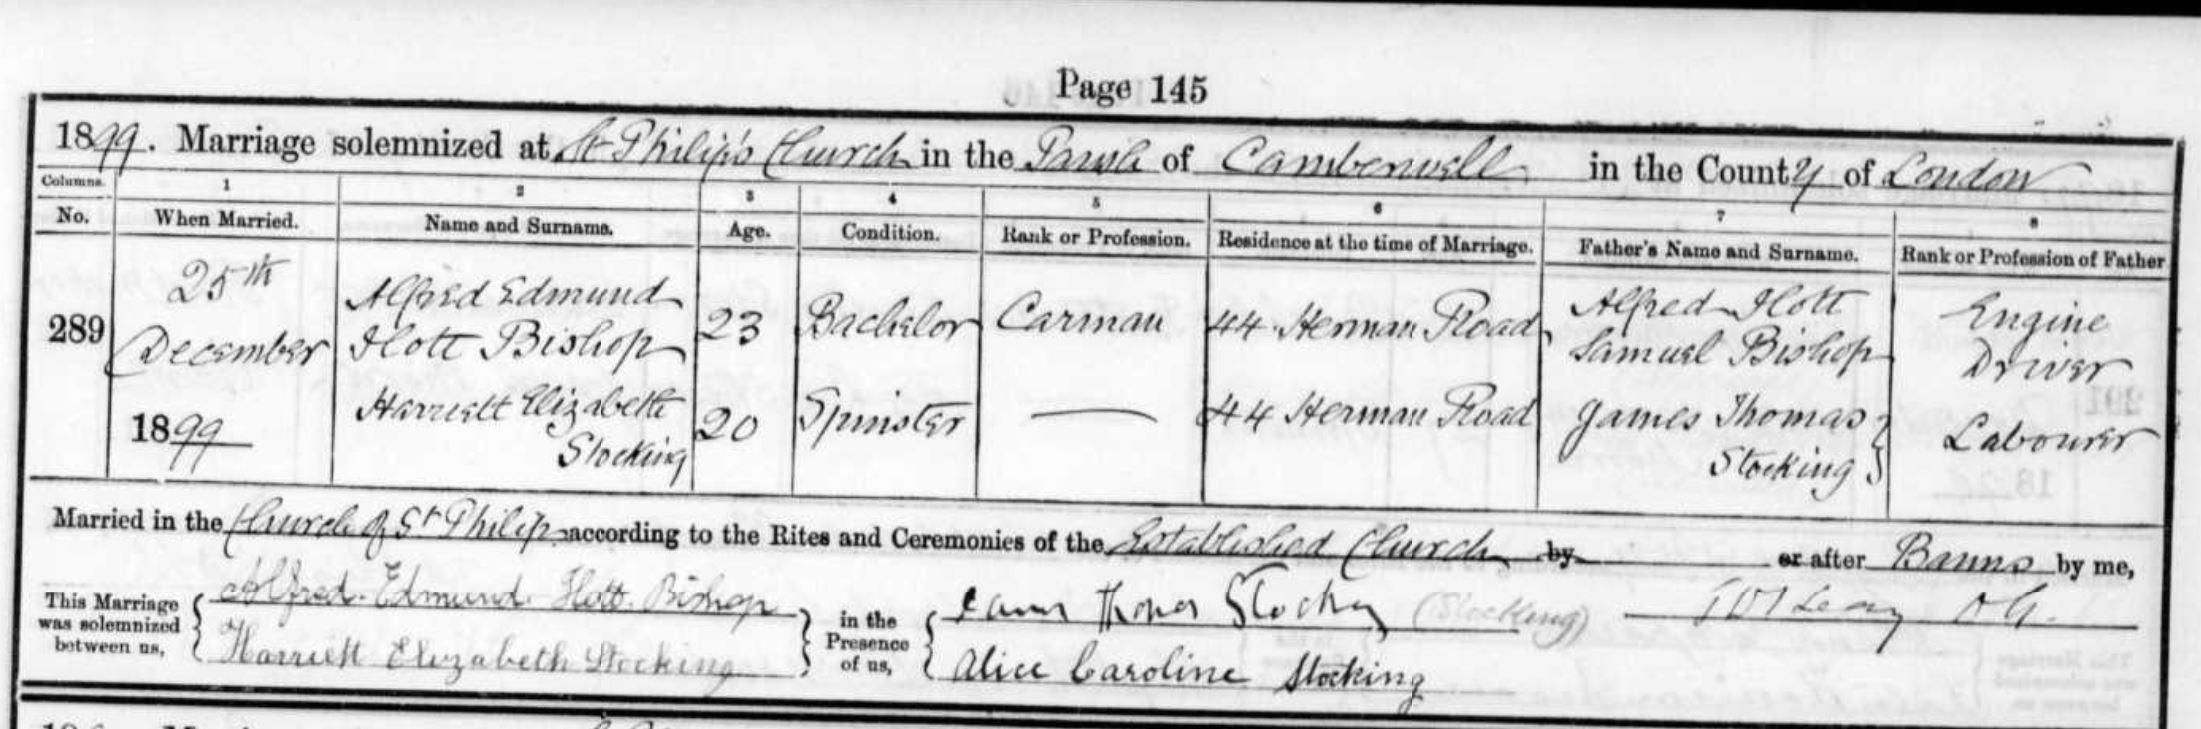 Page 145
1899. Marriage solemnized at St Philip's Church in the Parish of Camberwell in the County of London
Columns. 1 2 3 4 5 6 7 8
No. When Married. Name and Surname. Age. Condition. Rank or Profession. Residence at the time of Marriage. Father's Name and Surname. Rank or Profession of Father
25th Alfred Edmund Alfred Ilott Engine
289 December Ilott Bishop 23 Bachelor Carman 44 Herman Road Samuel Bishop Driver
1899 Harriett Elizabeth 20 Spinster — 44 Herman Road James Thomas Labourer
Stocking Stocking
Married in the Church of St Philip according to the Rites and Ceremonies of the Established Church by or after Banns by me,
This Marriage was solemnized between us, Alfred Edmund Ilott Bishop in the Presence of us, Thomas Stocking (Stocking)
Harriett Elizabeth Stocking Alice Caroline Stocking